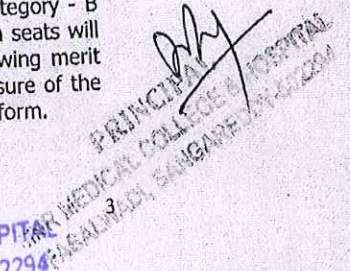 tegory - B
seats will
wing merit
sure of the
form.
PRINCIPAL
MEDICAL COLLEGE & HOSPITAL
SANGAREDDY-502294
3
PITAL
2294